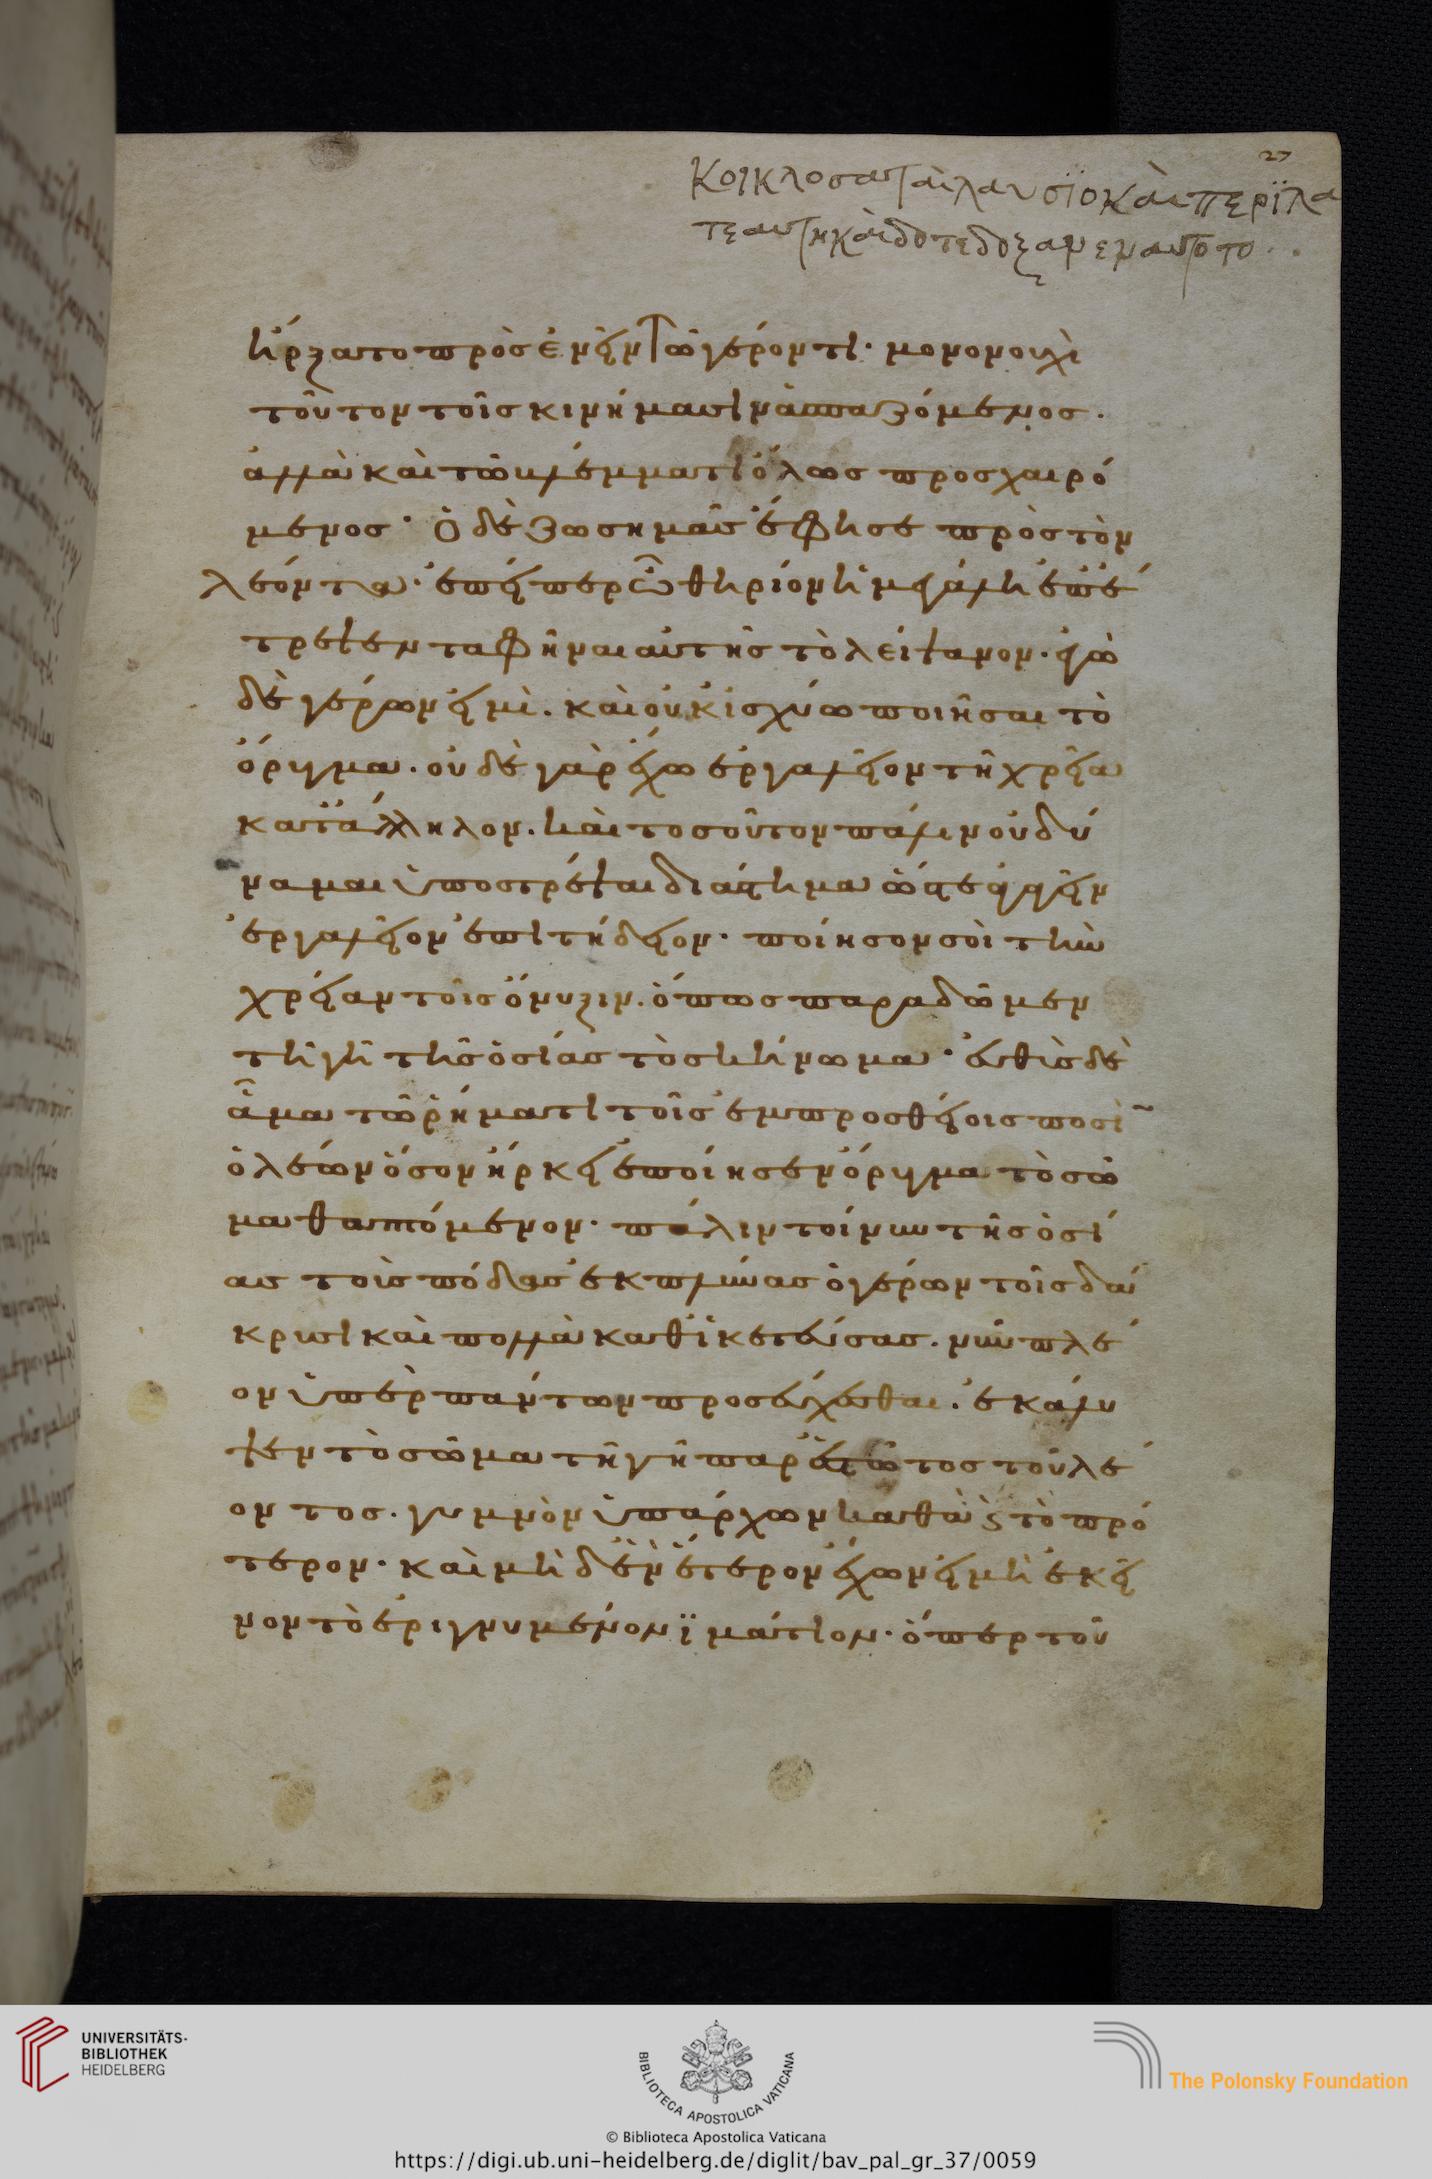 27
Κοικλοσαται λαυσϊο και περϊλα
τε αυτη και δοτε δοξαν εν αυτο το..
ἤρξατο προσένειν τῷ γέροντι· μονονουχὶ
τοῦτον τοῖς κινήμασιν ἀσπαζόμενος.
ἀλλὰ καὶ τῷ βλέμματι ὅλως προσχαιρό
μενος· ὁ δὲ ζωσημᾶς ἔφησε πρὸς τὸν
λέοντα· ἐπείπερ ὦ θηρίον ἡ μεγάλη ἐπέ
τρεψεν ταφῆναι αὐτῆς τὸ λείψανον· ἐγὼ
δὲ γέρων εἰμὶ. καὶ οὐκ ἰσχύω ποιῆσαι τὸ
ὄρυγμα. οὐδὲ γὰρ ἔχω ἐργαλεῖον τῇ χρεία
κατάλληλον. καὶ τοσοῦτον πάλιν οὐ δύ
ναμαι ὑποστρέψαι διάστημα ὥστε ἀγαγεῖν
ἐργαλεῖον ἐπιτήδειον· ποίησον σοὶ τὴν
χρείαν τοῖς ὄνυξιν. ὅπως παραδῶμεν
τῇ γῇ τῆς ὁσίας τὸ σκήνωμα· εὐθὺς δὲ
ἅμα τῷ ῥήματι τοῖς ἐμπροσθίοις ποσὶ
ὁ λέων ὅσον ἤρκει ἐποίησεν ὄρυγμα τὸ σῶ
μα θαπτόμενον· πάλιν τοίνυν τῆς ὁσί
ας τοὺς πόδας ἐκπλύνας ὁ γέρων τοῖς δά
κρυσι καὶ πολλὰ καθϊκετεύσας. νῦν πλέ
ον ὑπὲρ πάντων προσεύχεσθαι. ἐκάλυ
ψεν τὸ σῶμα τῇ γῇ παρεστῶτος τοῦ λέ
οντος. γυμνὸν ὑπάρχων καθὼς τὸ πρό
τερον· καὶ μηδὲν ἕτερον ἔχων εἰ μὴ ἐκεῖ
νον τὸ ἐριγνυμένον ϊμάτιον· ὅπερ τοῦ
UNIVERSITÄTS-
BIBLIOTHEK
HEIDELBERG
BIBLIOTECA APOSTOLICA VATICANA
The Polonsky Foundation
© Biblioteca Apostolica Vaticana
https://digi.ub.uni-heidelberg.de/diglit/bav_pal_gr_37/0059